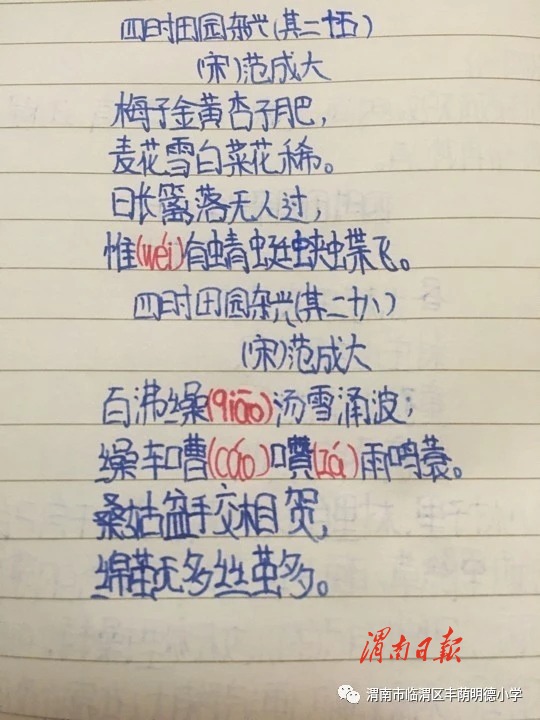 四时田园杂兴(其二十五)
(宋)范成大
梅子金黄杏子肥,
麦花雪白菜花稀。
日长篱落无人过,
惟(wéi)有蜻蜓蛱蝶飞。
四时田园杂兴(其二十八)
(宋)范成大
百沸缲(qiāo)汤雪涌波,
缲车嘈(cáo)囋(zá)雨鸣蓑。
桑姑盆手交相贺,
绵茧无多丝茧多。
渭南日报
渭南市临渭区丰荫明德小学